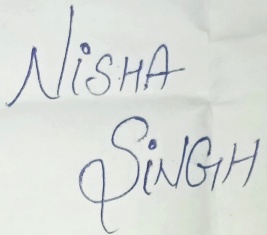 NiSHA
SiNGH